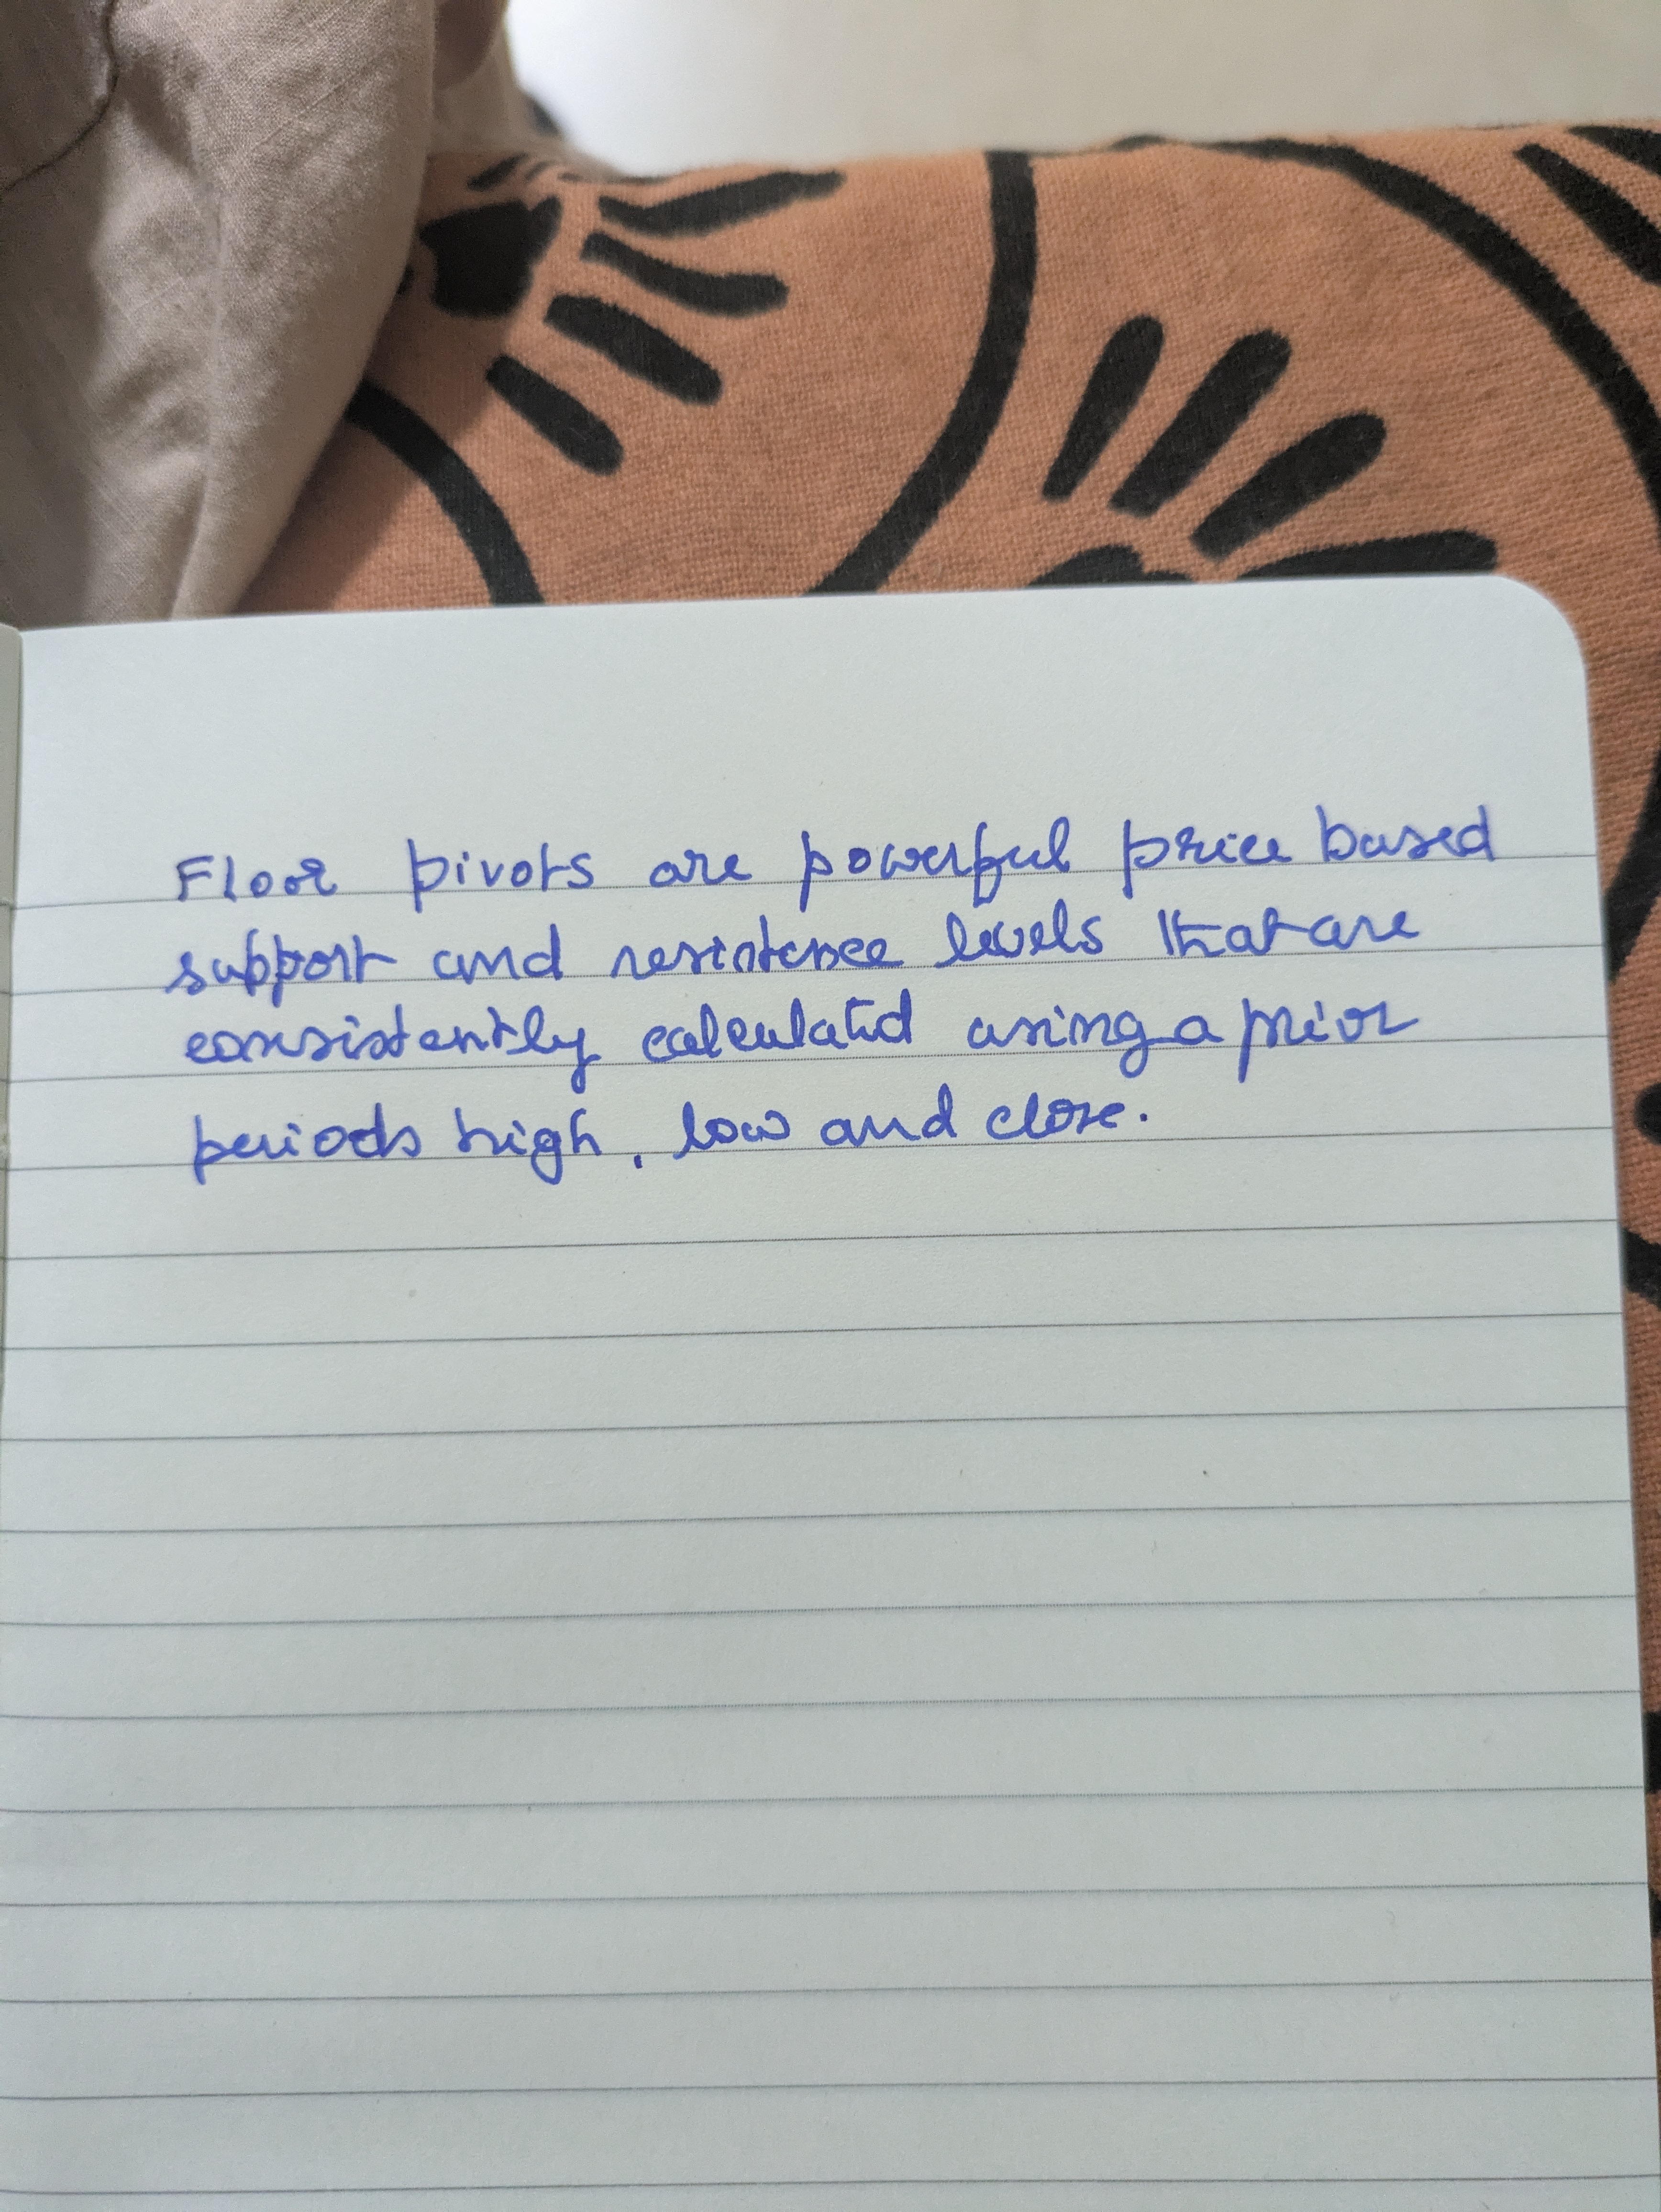 Floor pivots are powerful price based
support and resistence levels that are
consistently calculated using a prior
periods high, low and close.